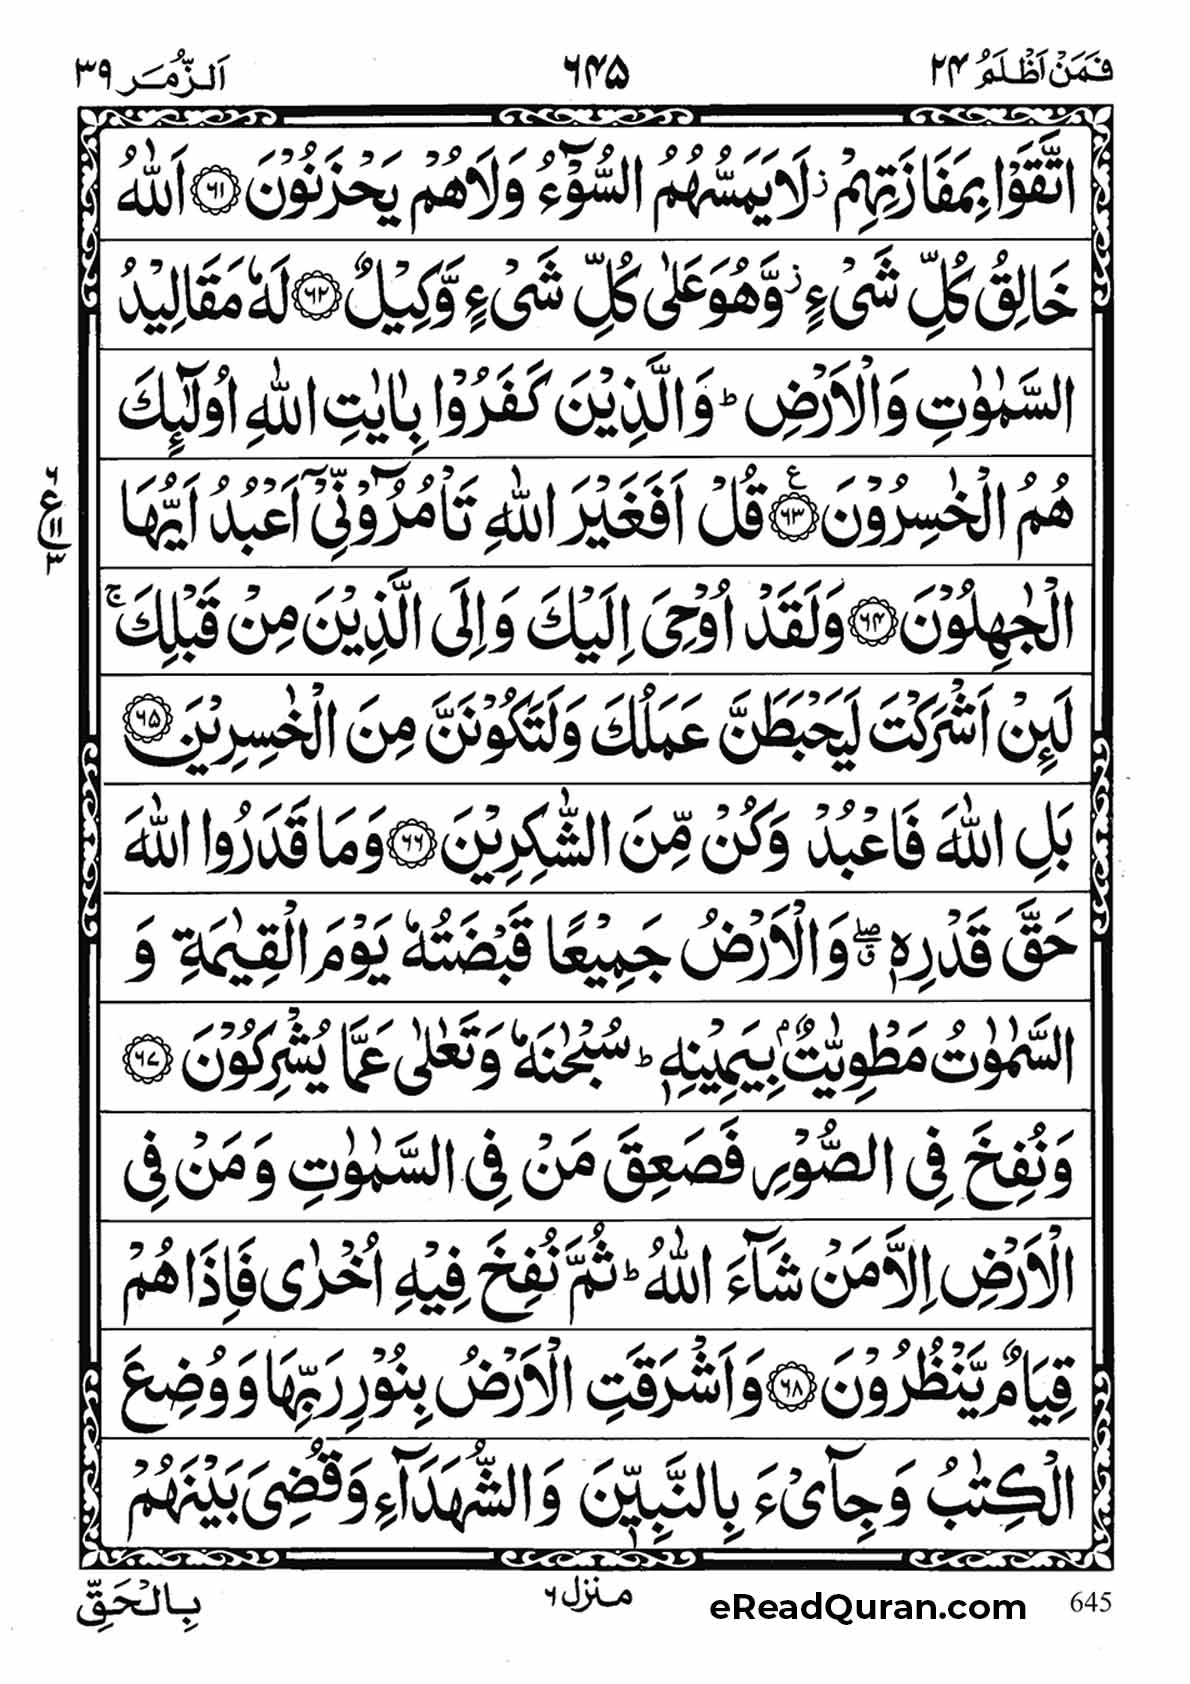 فَمَنْ اَظْلَمُ ٢٤ ٦٤٥ اَلزُّمَر ٣٩
اتَّقَوْا بِمَفَازَتِهِمْ ز لَا يَمَسُّهُمُ السُّوْٓءُ وَلَا هُمْ يَحْزَنُوْنَ ٦١ اَللّٰهُ
خَالِقُ كُلِّ شَیْءٍ ز وَّهُوَ عَلٰی كُلِّ شَیْءٍ وَّكِيْلٌ ٦٢ لَهٗ مَقَالِيْدُ
السَّمٰوٰتِ وَالْاَرْضِ ط وَالَّذِيْنَ كَفَرُوْا بِاٰيٰتِ اللّٰهِ اُولٰٓئِكَ
هُمُ الْخٰسِرُوْنَ ٦٣ ع قُلْ اَفَغَيْرَ اللّٰهِ تَاْمُرُوْٓنِّیْٓ اَعْبُدُ اَيُّهَا
ع ٦ ١١ ٣
الْجٰهِلُوْنَ ٦٤ وَلَقَدْ اُوْحِیَ اِلَيْكَ وَاِلَی الَّذِيْنَ مِنْ قَبْلِكَ ج
لَئِنْ اَشْرَكْتَ لَيَحْبَطَنَّ عَمَلُكَ وَلَتَكُوْنَنَّ مِنَ الْخٰسِرِيْنَ ٦٥
بَلِ اللّٰهَ فَاعْبُدْ وَكُنْ مِّنَ الشّٰكِرِيْنَ ٦٦ وَمَا قَدَرُوا اللّٰهَ
حَقَّ قَدْرِهٖ ۖق وَالْاَرْضُ جَمِيْعًا قَبْضَتُهٗ يَوْمَ الْقِيٰمَةِ وَ
السَّمٰوٰتُ مَطْوِيّٰتٌۢ بِيَمِيْنِهٖ ط سُبْحٰنَهٗ وَتَعٰلٰی عَمَّا يُشْرِكُوْنَ ٦٧
وَنُفِخَ فِی الصُّوْرِ فَصَعِقَ مَنْ فِی السَّمٰوٰتِ وَمَنْ فِی
الْاَرْضِ اِلَّا مَنْ شَآءَ اللّٰهُ ط ثُمَّ نُفِخَ فِيْهِ اُخْرٰی فَاِذَا هُمْ
قِيَامٌ يَّنْظُرُوْنَ ٦٨ وَاَشْرَقَتِ الْاَرْضُ بِنُوْرِ رَبِّهَا وَوُضِعَ
الْكِتٰبُ وَجِآیْءَ بِالنَّبِيّٖنَ وَالشُّهَدَآءِ وَقُضِیَ بَيْنَهُمْ
بِالْحَقِّ منزل ٦ eReadQuran.com 645